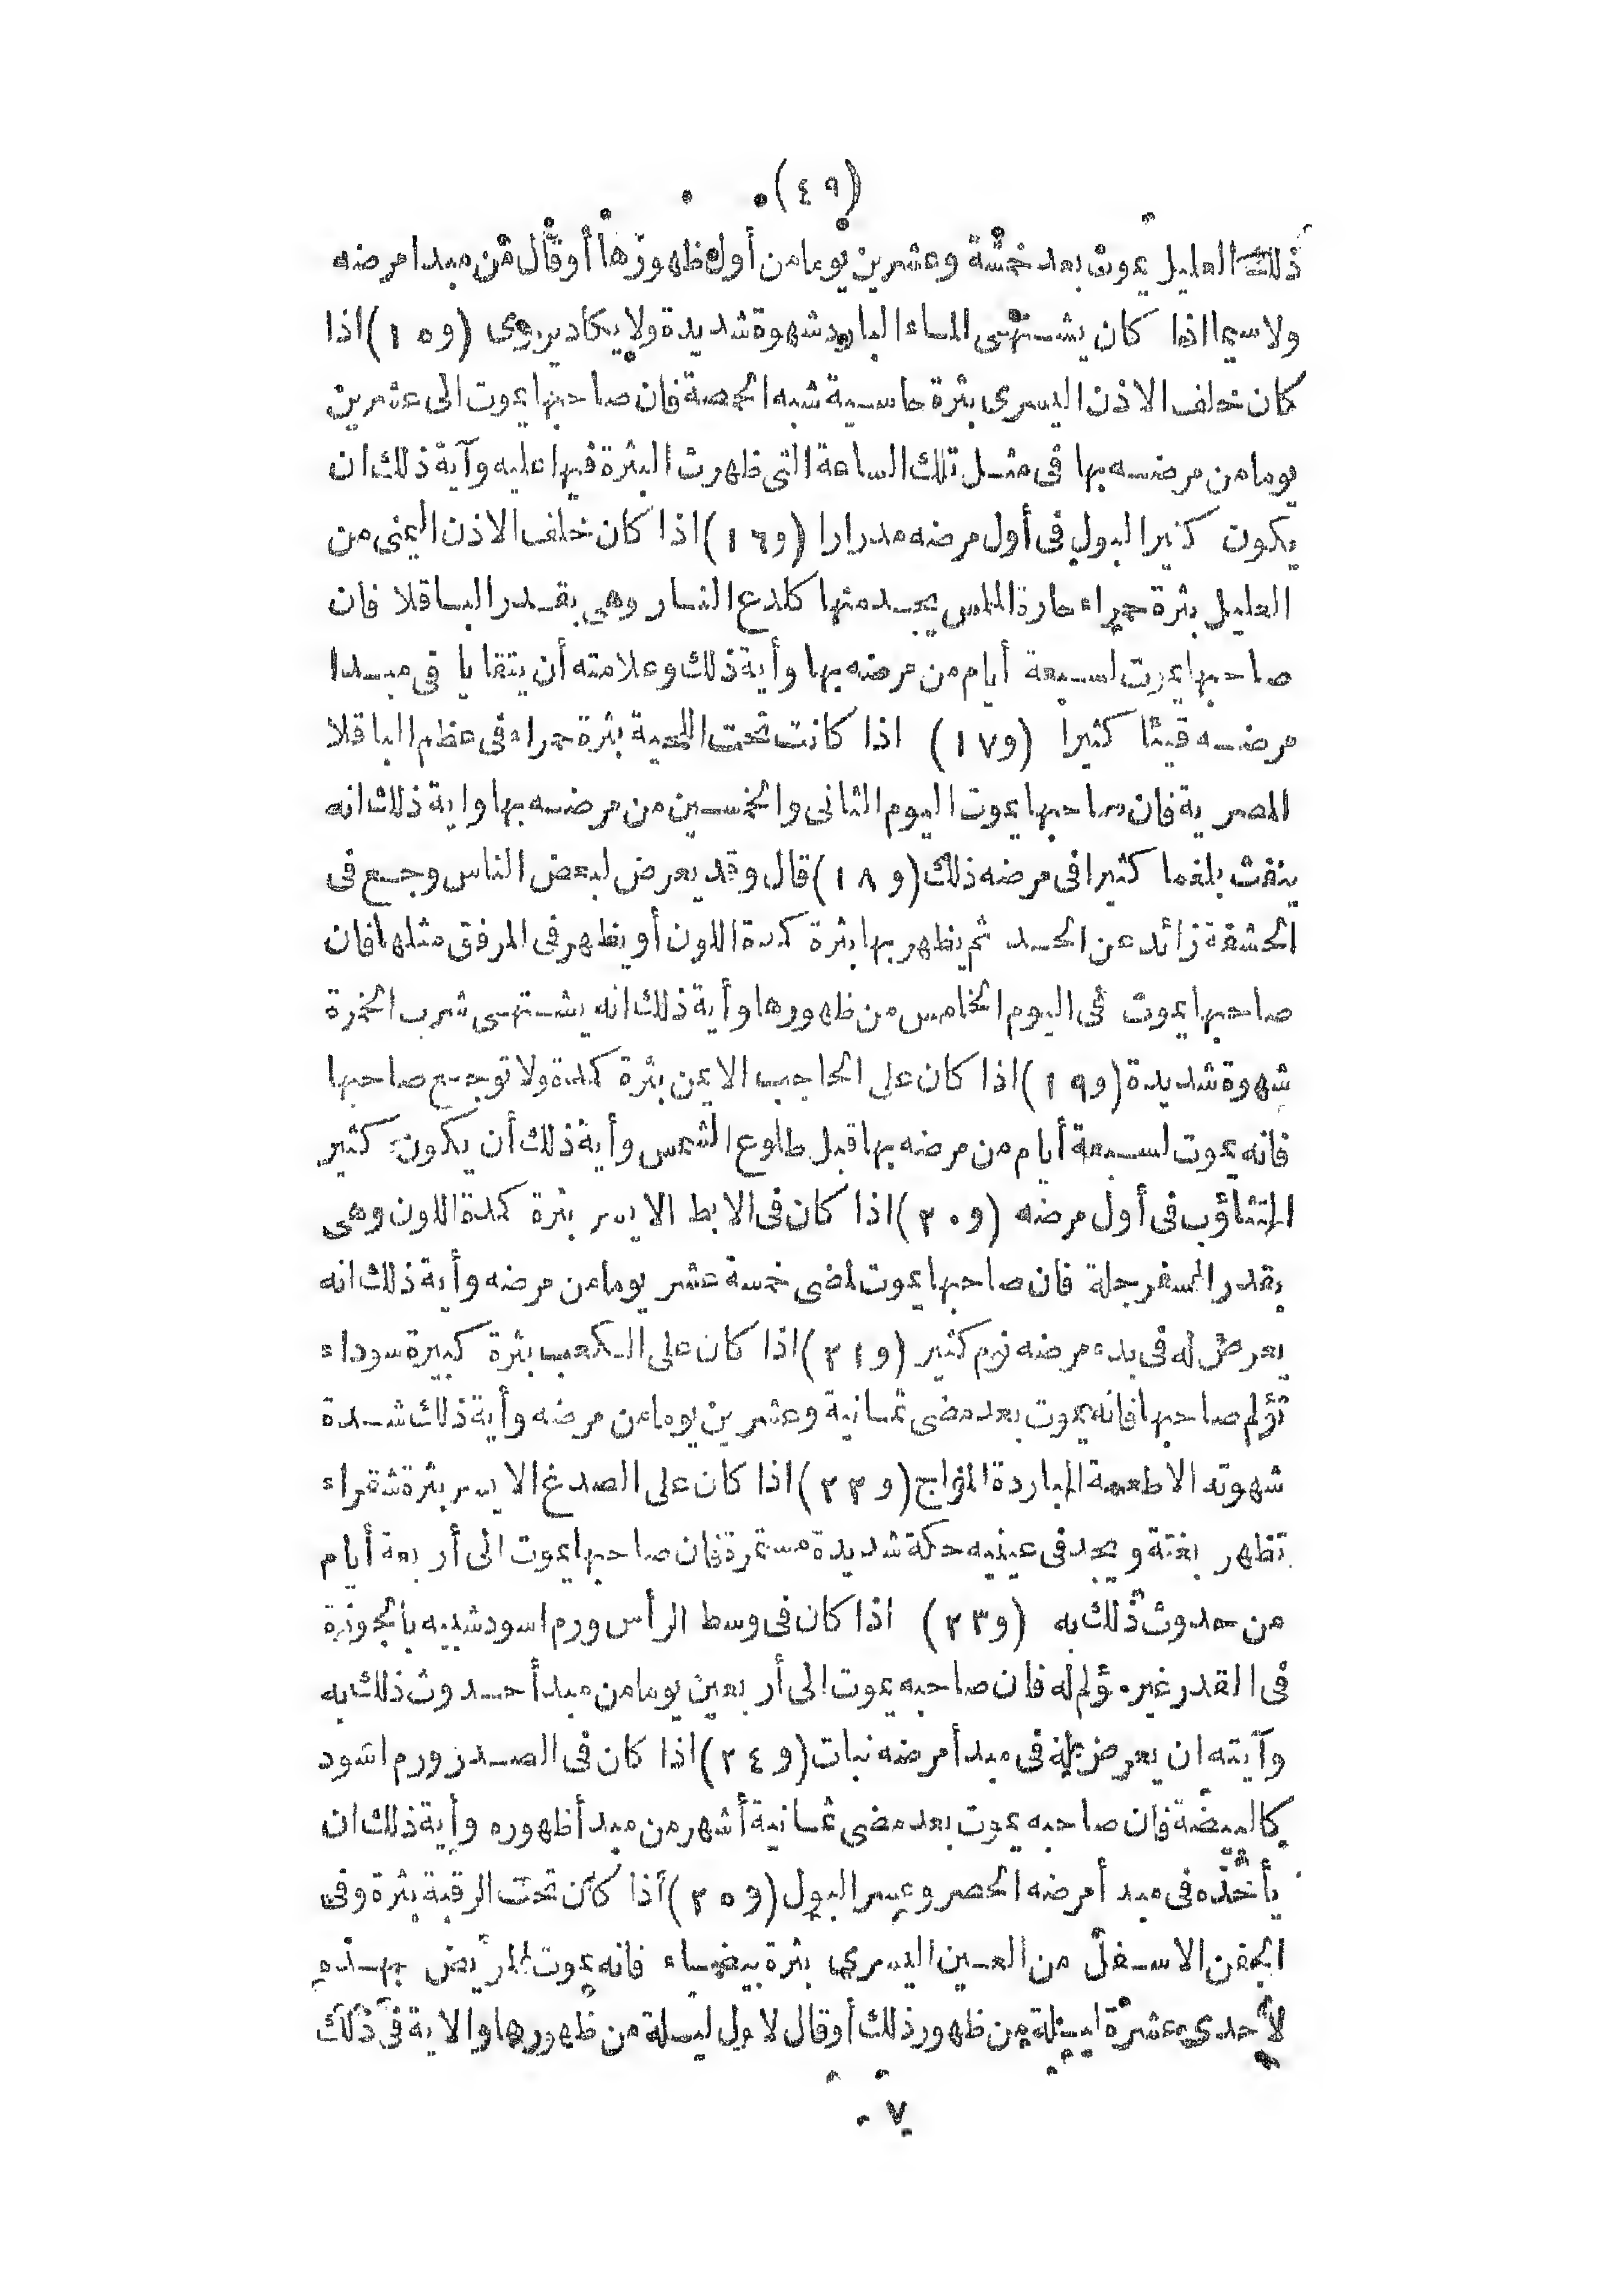 (٤٩)
ذلك العليل يموت بعد خمسة وعشرين يوما من أول ظهورها أو قال من مبدا مرضه
ولا سيما اذا كان يشتهى الماء البارد شهوة شديدة ولا يكاد يروى (و ١٥) اذا
كان خلف الاذن اليسرى بثرة حاسية شبه الحمصة فان صاحبها يموت الى عشرين
يوما من مرضه بها فى مثل تلك الساعة التى ظهرت البثرة فيها عليه وآية ذلك ان
يكون كثير البول فى أول مرضه مدرارا (و ١٦) اذا كان خلف الاذن اليمنى من
العليل بثرة حمراء حارة الملمس يجد منها كلدع النار وهى بقدر الباقلا فان
صاحبها يموت لسبعة أيام من مرضه بها وأية ذلك وعلامته أن يتقايا فى مبدا
مرضه قيئا كثيرا (و ١٧) اذا كانت تحت اللحية بثرة حمراء فى عظم الباقلا
المصرية فان صاحبها يموت اليوم الثانى والخمسين من مرضه بها واية ذلك انه
ينفث بلغما كثيرا فى مرضه ذلك (و ١٨) قال وقد يعرض لبعض الناس وجع فى
الحشفة زائد عن الحد ثم يظهر بها بثرة كمدة اللون أو يظهر فى المرفق مثلها فان
صاحبها يموت فى اليوم الخامس من ظهورها وأية ذلك انه يشتهى شرب الخمرة
شهوة شديدة (و ١٩) اذا كان على الحاجب الايمن بثرة كمدة ولا توجع صاحبها
فانه يموت لسبعة أيام من مرضه بها قبل طلوع الشمس وأية ذلك أن يكون كثير
التثاؤب فى أول مرضه (و ٢٠) اذا كان فى الابط الايسر بثرة كمدة اللون وهى
بقدر السفرجلة فان صاحبها يموت لمضى خمسة عشر يوما من مرضه وأية ذلك انه
يعرض له فى بدء مرضه نوم كثير (و ٢١) اذا كان على الكعب بثرة كبيرة سوداء
تؤلم صاحبها فانه يموت بعد مضى ثمانية وعشرين يوما من مرضه وأية ذلك شدة
شهوته الاطعمة الباردة المزاج (و ٢٢) اذا كان على الصدغ الايسر بثرة شقراء
تظهر بغتة ويجد فى عينيه حكة شديدة مستمرة فان صاحبها يموت الى أربعة أيام
من حدوث ذلك به (و ٢٣) اذا كان فى وسط الرأس ورم اسود شبيه بالجوزة
فى القدر غير مؤلم له فان صاحبه يموت الى أربعين يوما من مبدأ حدوث ذلك به
وآيته ان يعرض له فى مبدأ مرضه نبات (و ٢٤) اذا كان فى الصدر ورم اسود
كالبيضة فان صاحبه يموت بعد مضى ثمانية أشهر من مبدأ ظهوره وأية ذلك ان
يأخذه فى مبدأ مرضه الحصر وعسر البول (و ٢٥) اذا كان تحت الرقبة بثرة وفى
الجفن الاسفل من العين اليسرى بثرة بيضاء فانه يموت المريض بهذه
لاحدى عشرة ليلة من ظهور ذلك أو قال لاول ليلة من ظهورها والاية فى ذلك
٧